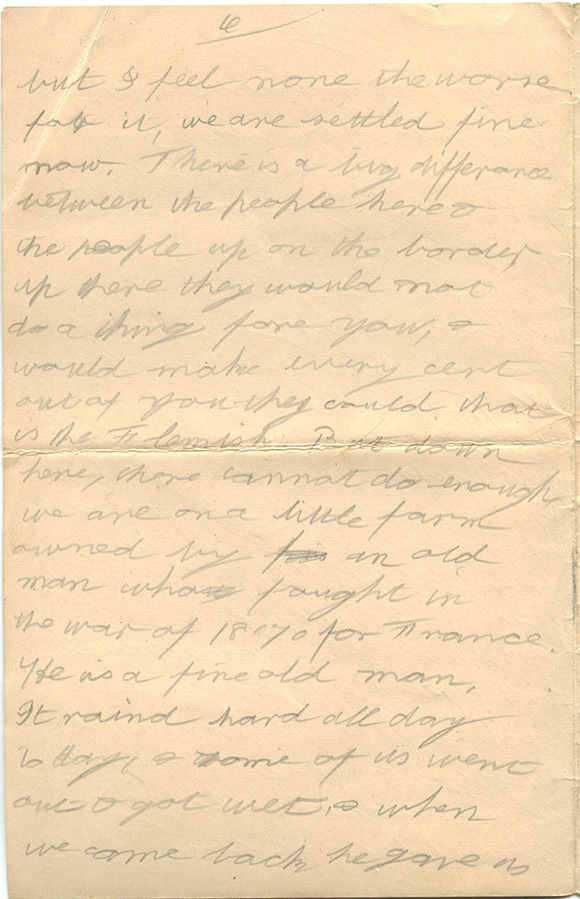 6
but I feel none the worse
for it, we are settled fine
now. There is a big differance
between the people here &
the people up on the border,
up there they would not
do a thing fore you, &
would make every cent
out of you they could. that
is the Flemish. But down
here, there cannot do enough
we are on a little farm
owned by an old
man who fought in
the war of 1870 for France.
He is a fine old man,
It raind hard all day
to day, & some of us went
out & got wet, & when
we came back he gave us